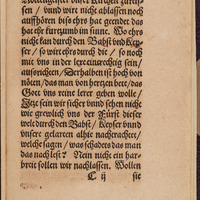 sen / vnnd wirt nicht ablassen noch
auffhören biss ehrs hat geendet das
hat ehr kurtzumb im sinne. Wo ehrs
nicht kan durch den Babst vnd Key-
ser / so wirt ehrs durch die / so noch
mit vns in der lere eintrechtig sein /
ausrichten / Derhalben ist hoch von
nöten / das man von hertzen bete / das
Gott vns reine lerer geben wolle /
Jetzt sein wir sicher vnnd sehen nicht
wie grewlich vns der Fürst dieser
welt durch den Babst / Keyser vnnd
vnsere gelarten alhie nachtrachtet /
welche sagen / was schadets das man
das nachlest? Nein nicht ein har-
breit sollen wir nachlassen. Wollen
C ij sie